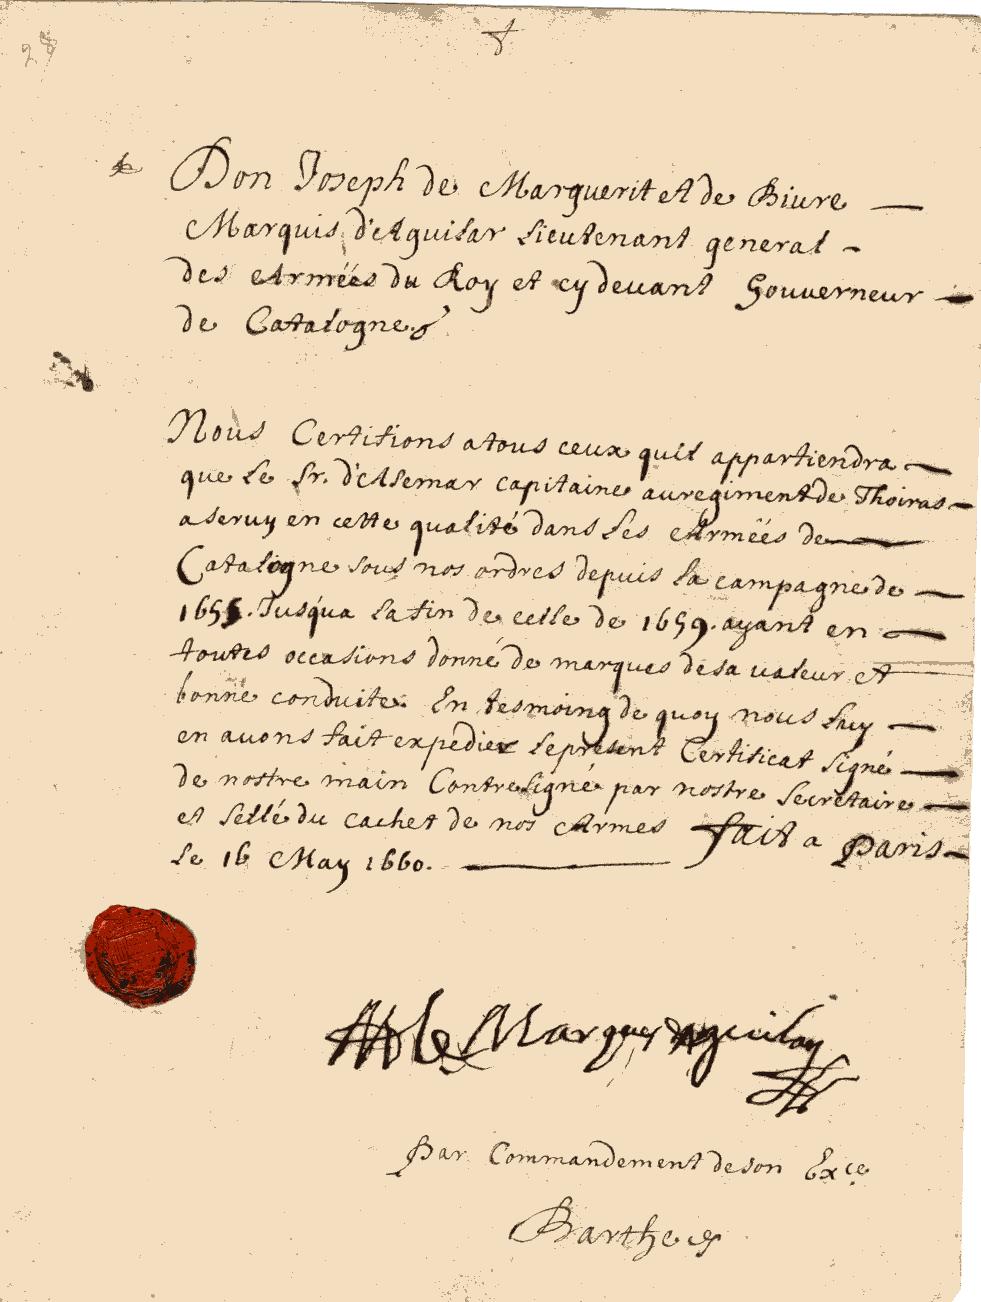 28
Don Joseph de Marguerit et de Biure
Marquis d'Aguilar lieutenant general
des Armées du Roy et cy devant Gouverneur
de Catalogne.
Nous Certifions a tous ceux quil appartiendra
que le Sr. d'Asemar capitaine au regiment de Thoiras
a servy en cette qualité dans les Armëés de
Catalogne sous nos ordres depuis la campagne de
1655. Jusqua la fin de celle de 1659. ayant en
toutes occasions donné de marques de sa valeur et
bonne conduite. En tesmoing de quoy nous luy
en avons fait expedier le present Certificat signé
de nostre main Contresigné par nostre Secretaire
et sellé du cachet de nos Armes fait a Paris
le 16 May 1660.
le Marques Daguilar
Par Commandement de son Exce
Barthe